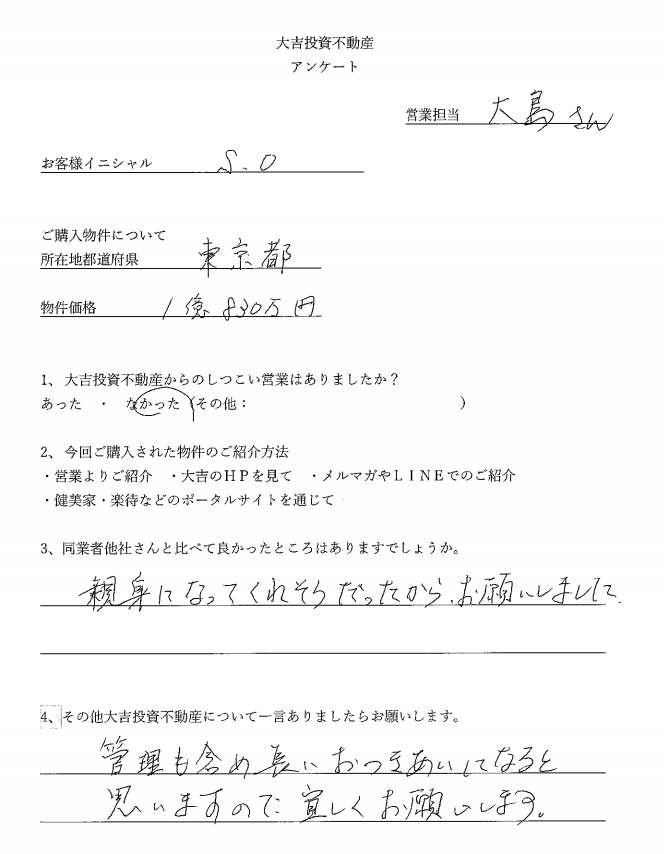 大吉投資不動産
アンケート
営業担当 大島さん
お客様イニシャル S.O
ご購入物件について
所在地都道府県 東京都
物件価格 1億830万円
1、大吉投資不動産からのしつこい営業はありましたか？
あった ・ なかった（その他： ）
2、今回ご購入された物件のご紹介方法
・営業よりご紹介 ・大吉のHPを見て ・メルマガやLINEでのご紹介
・健美家・楽待などのポータルサイトを通じて
3、同業者他社さんと比べて良かったところはありますでしょうか。
親身になってくれそうだったから、お願いしまして。
4、その他大吉投資不動産について一言ありましたらお願いします。
管理も含め長いおつきあいになると
思いますので宜しくお願いします。